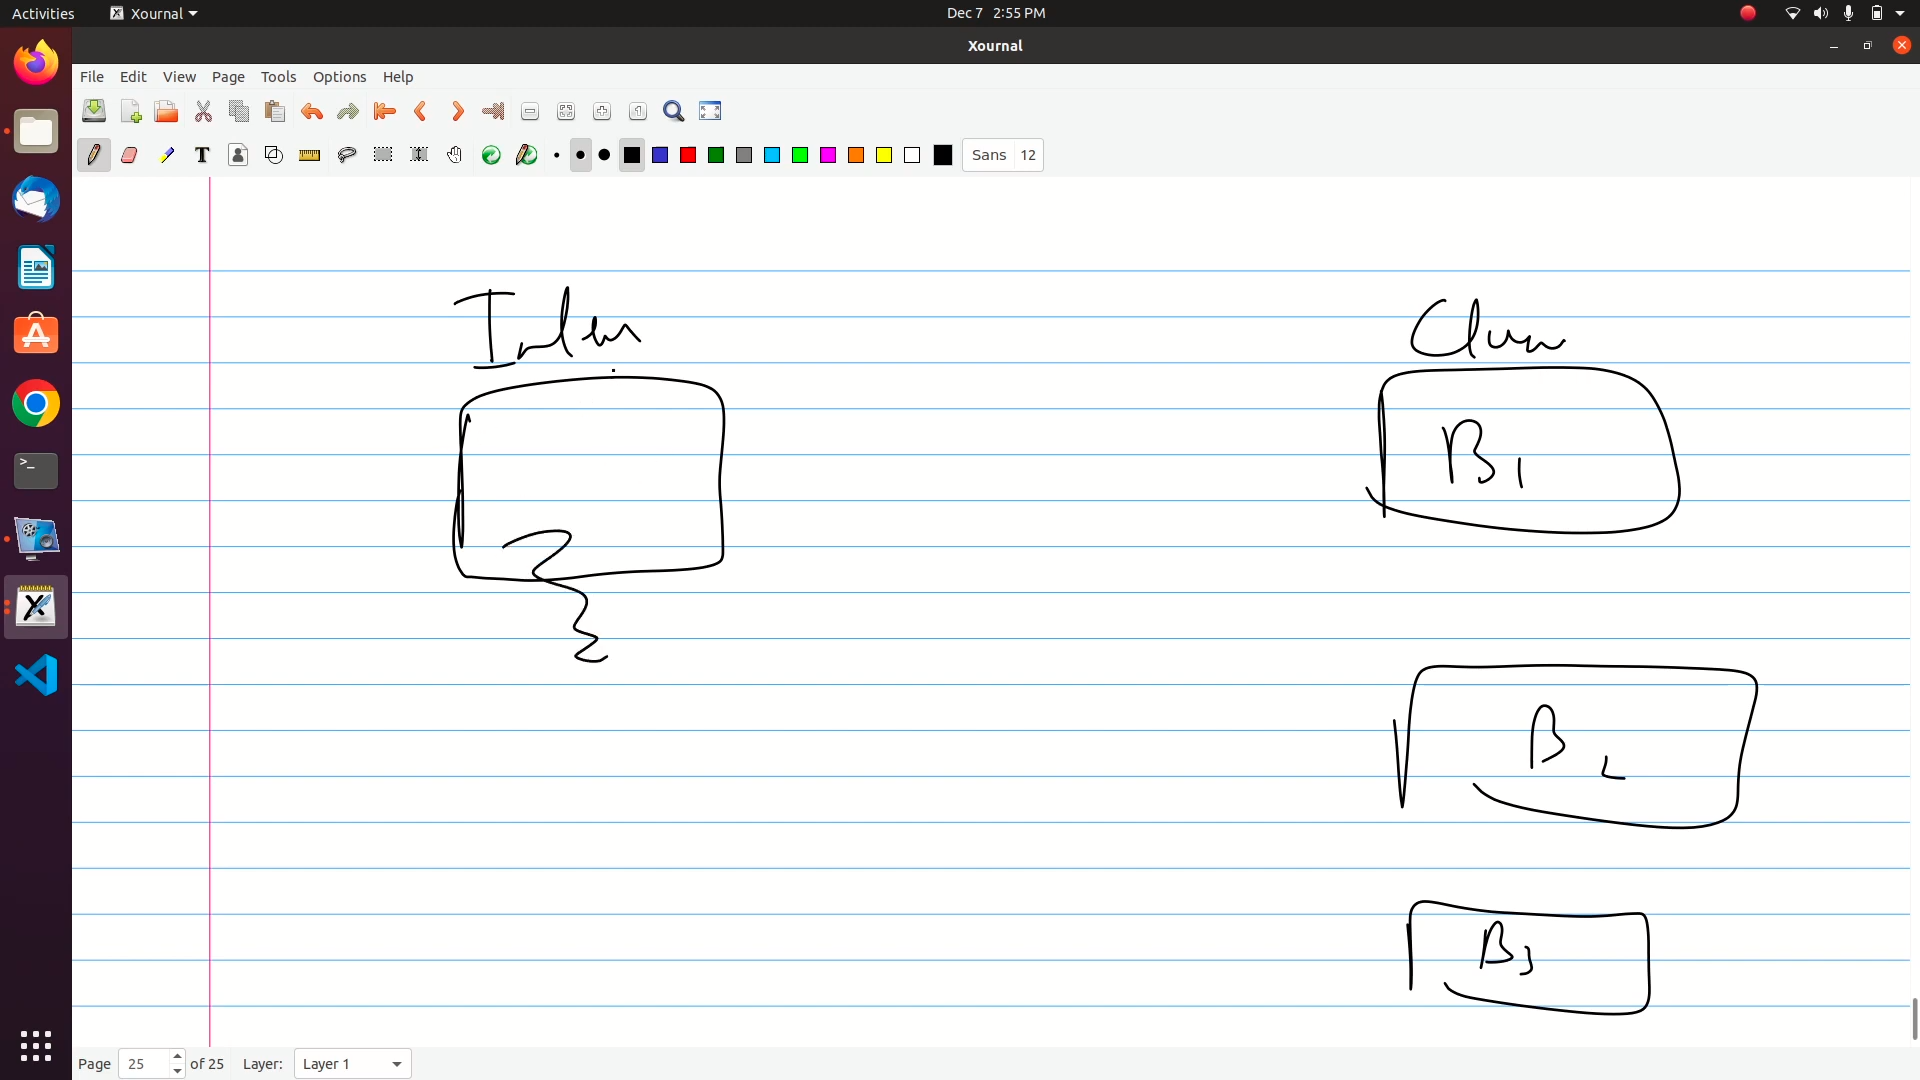 Activities Xournal Dec 7 2:55 PM
Xournal
File Edit View Page Tools Options Help
T Sans 12
B1
B2
B3
Page 25 of 25 Layer: Layer 1